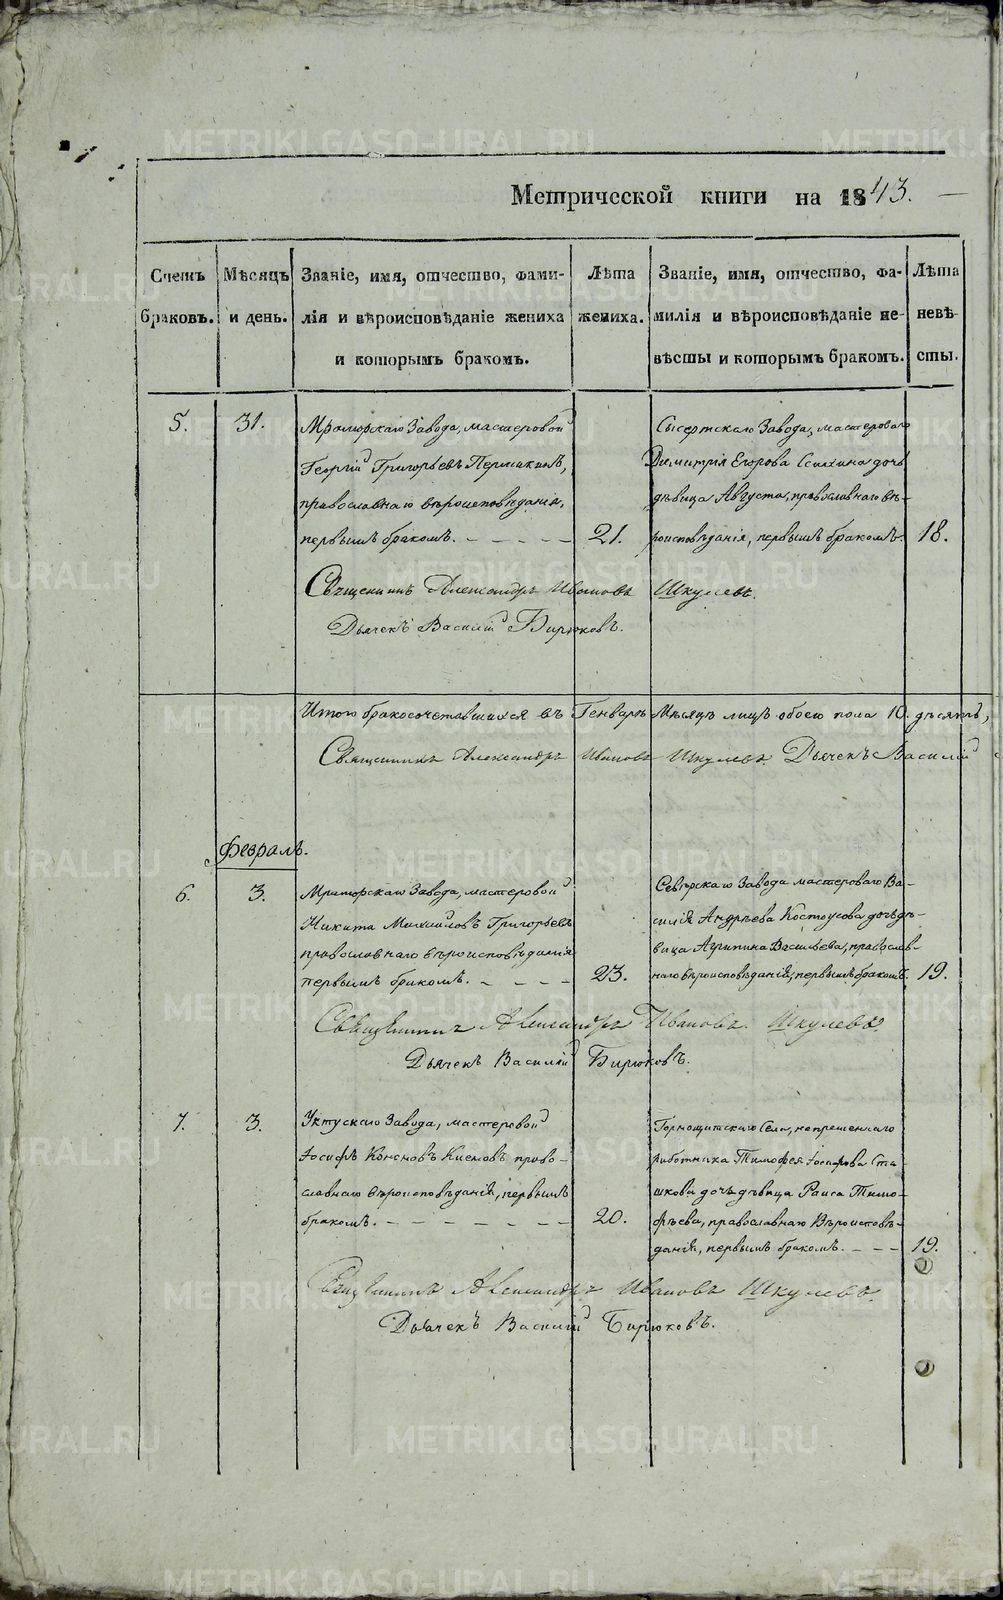 Метрической книги на 1843.
Счетъ браковъ.
Мѣсяцъ и день.
Званіе, имя, отчество, фами-
лія и вѣроисповѣданіе жениха
и которымъ бракомъ.
Лѣта жениха.
Званіе, имя, отчество, фа-
милія и вѣроисповѣданіе не-
вѣсты и которымъ бракомъ.
Лѣта невѣ-
сты.
5.
31.
Мраморскаго Завода, мастеровой
Георгій Григорьевъ Пермикинъ,
православнаго вѣроисповѣданія,
первымъ бракомъ.
21.
Сысертскаго Завода, мастероваго
Димитрія Егорова дочь
дѣвица Августа, православнаго вѣ-
роисповѣданія, первымъ бракомъ.
18.
Священникъ Александръ Ивановъ Шкулевъ.
Дьячекъ Василій Бирюковъ.
Итого бракосочетавшихся въ Генварѣ Мѣсяцѣ лицъ обоего пола 10. десять,
Священникъ Александръ Ивановъ Шкулевъ. Дьячекъ Василій
Февраль.
6.
3.
Мраморскаго Завода, мастеровой
Никита Михайловъ Григорьевъ
православнаго вѣроисповѣданія
первымъ бракомъ.
23.
Сѣверскаго Завода мастероваго Ва-
силія Андрѣева Костоусова дочь дѣ-
вица Агрипина Васильева, православ-
наго вѣроисповѣданія, первымъ бракомъ.
19.
Священникъ Александръ Ивановъ Шкулевъ.
Дьячекъ Василій Бирюковъ.
7.
3.
Уктускаго Завода, мастеровой
Іосифъ Кононовъ право-
славнаго вѣроисповѣданія, первымъ
бракомъ.
20.
Горнощитскаго Села, непремѣннаго
работника Тимофея Іосифова Ста-
шкова дочь дѣвица Раиса Тимо-
фѣева, православнаго Вѣроисповѣ-
данія, первымъ бракомъ.
19.
Священникъ Александръ Ивановъ Шкулевъ.
Дьячекъ Василій Бирюковъ.
METRIKI.GASO-URAL.RU